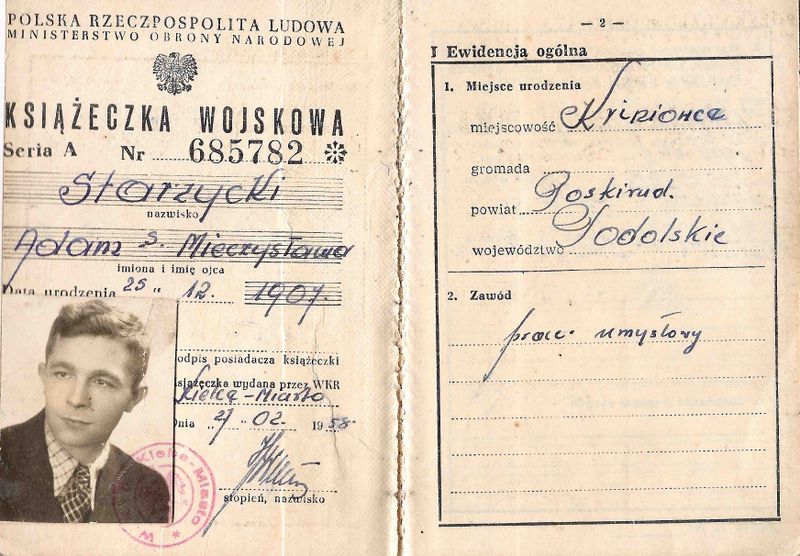 POLSKA RZECZPOSPOLITA LUDOWA
MINISTERSTWO OBRONY NARODOWEJ
KSIĄŻECZKA WOJSKOWA
Seria A Nr 685782
Starzycki
nazwisko
Adam s. Mieczysława
imiona i imię ojca
Data urodzenia 25 " 12. 1907.
podpis posiadacza książeczki
książeczka wydana przez WKR
Kielce-Miasto
dnia " 27 " 02. 1958
stopień, nazwisko
Kielce-Miasto
W
— 2 —
I Ewidencja ogólna
1. Miejsce urodzenia
miejscowość
gromada
powiat Poskirud.
województwo Podolskie
2. Zawód
prac. umysłowy